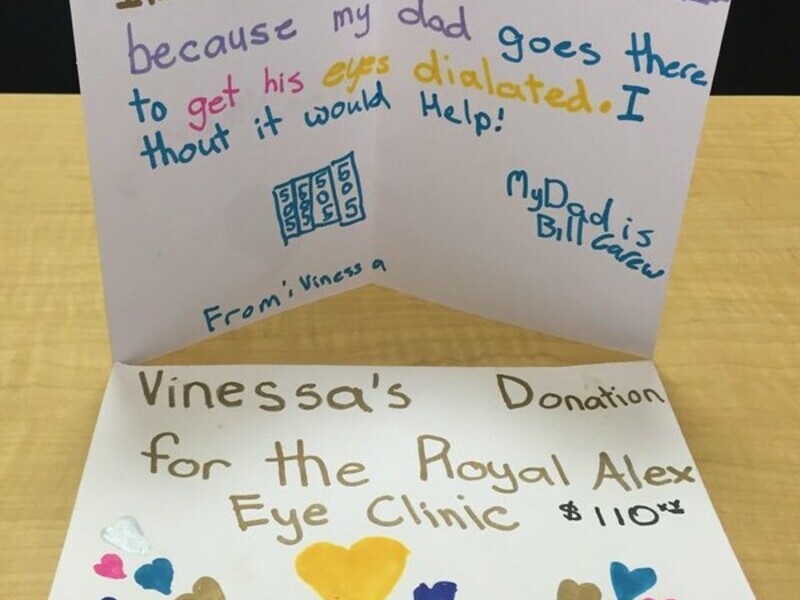 because my dad goes there
to get his eyes dialated. I
thout it would Help!
My Dad is
Bill Carew
From: Viness a
Vinessa's Donation
for the Royal Alex
Eye Clinic $110